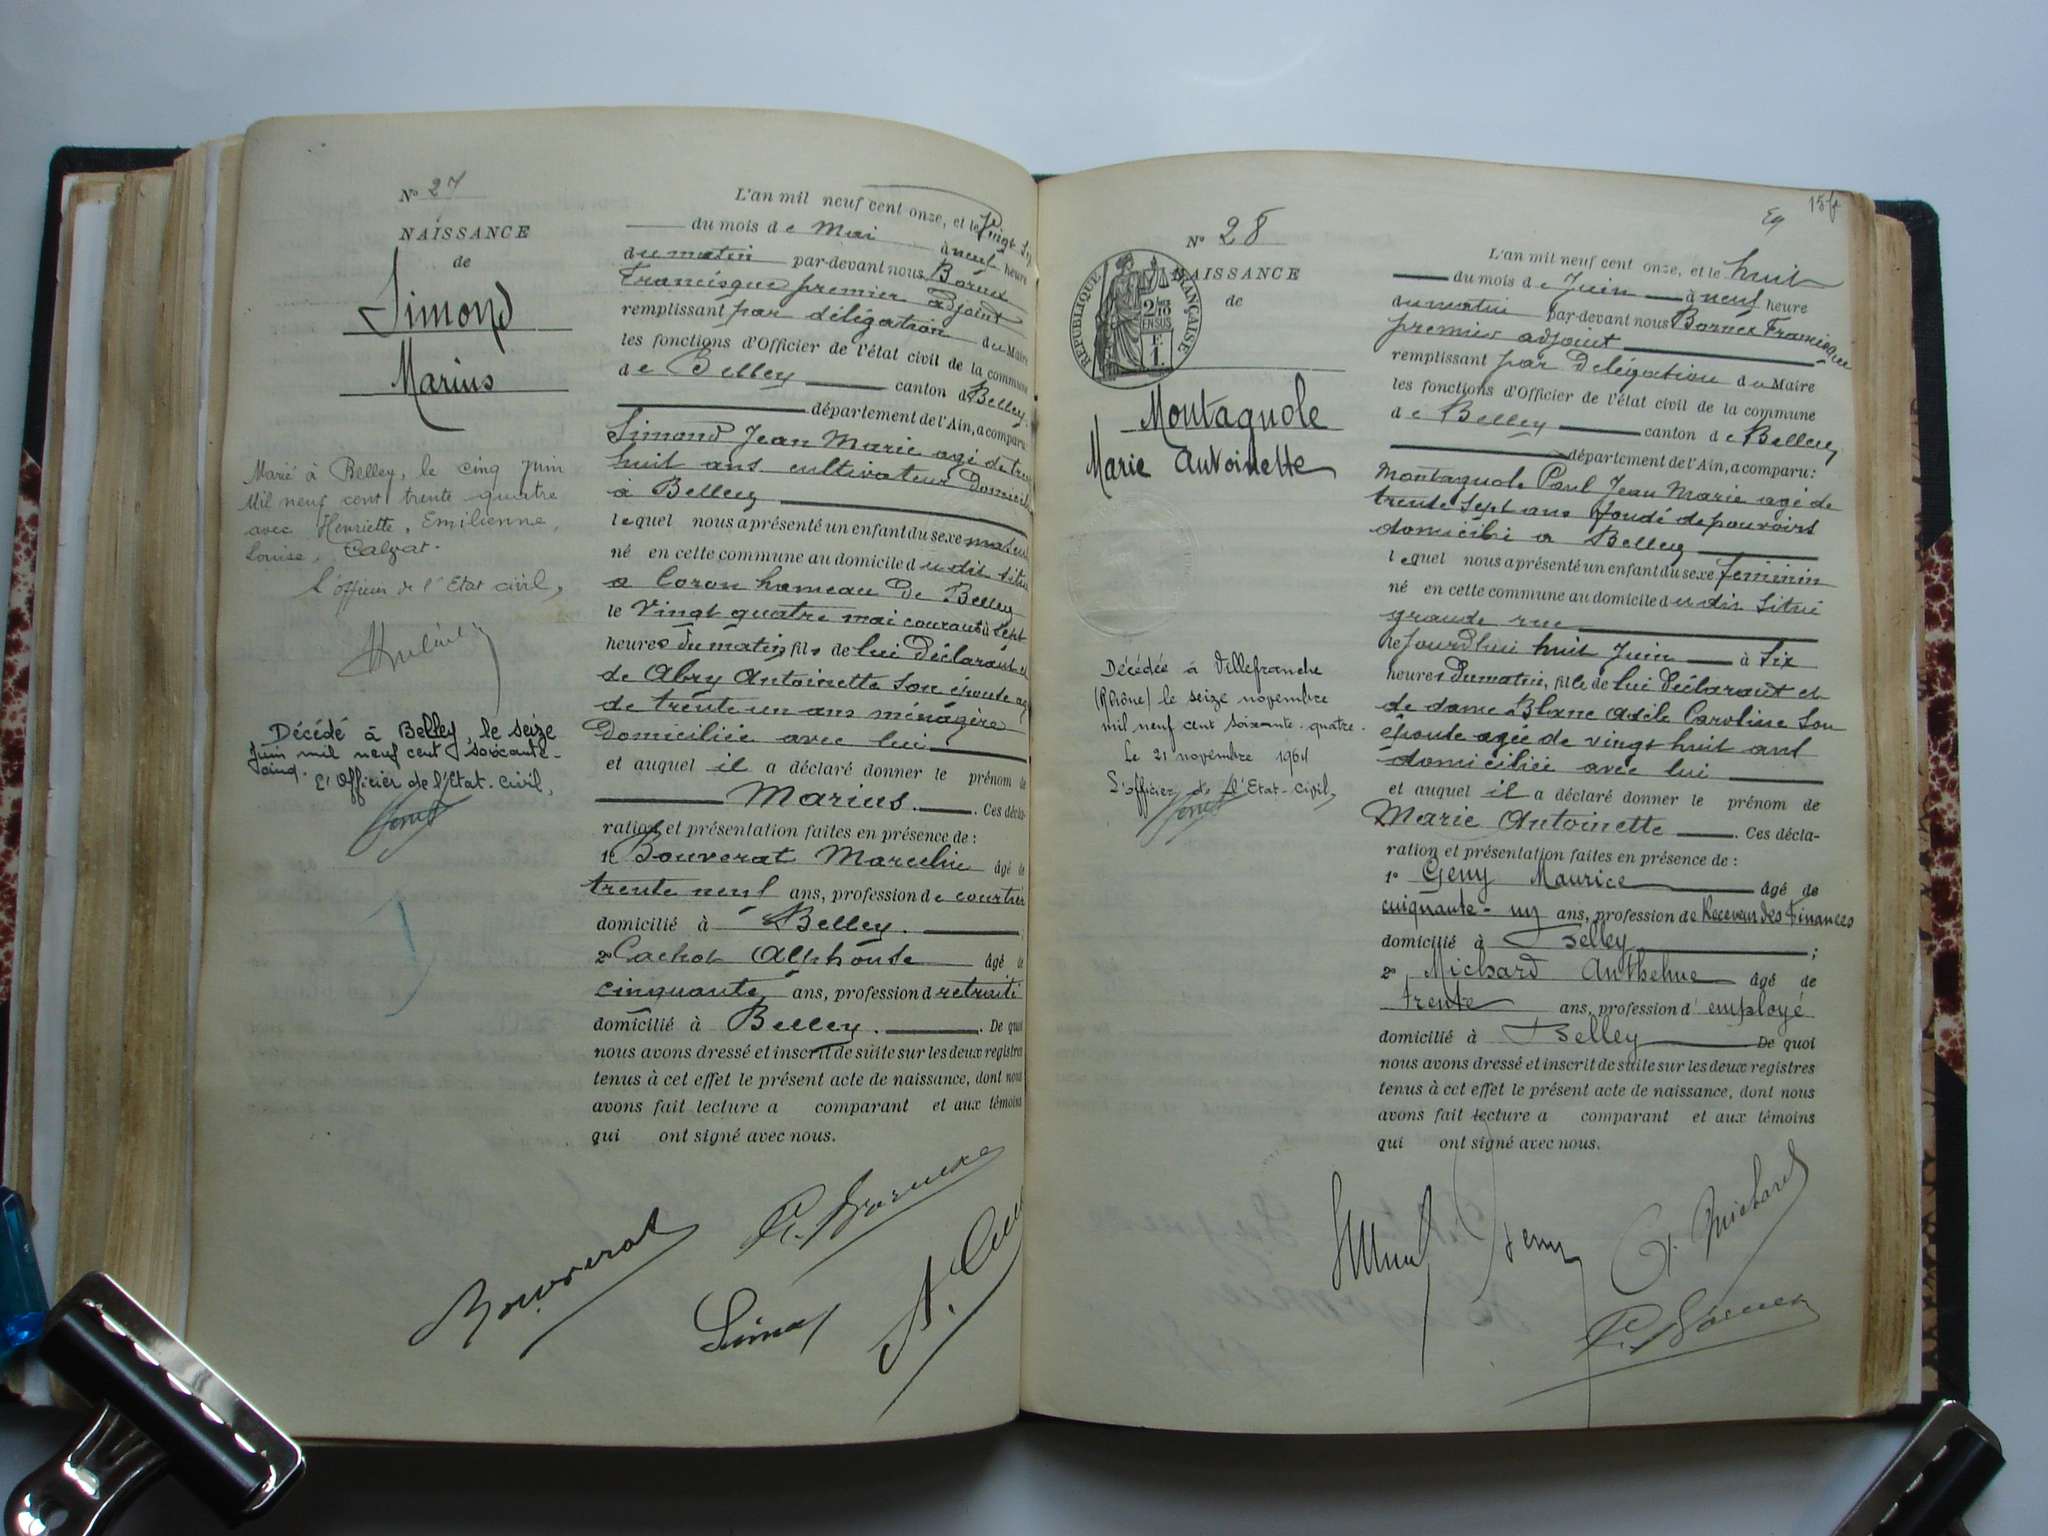 N° 27
NAISSANCE
de
Simond
Marius
Marié à Belley, le cinq juin
mil neuf cent trente quatre
avec Henriette, Emilienne,
Louise, Calzat.
l'officier de l'Etat civil,
Décédé à Belley, le seize
juin mil neuf cent soixante-
cinq.
L'Officier de l'Etat-Civil,
L'an mil neuf cent onze, et le vingt
du mois de Mai à neuf heure
du matin par-devant nous Bornex
Francisque premier adjoint
remplissant par délégation du Maire
les fonctions d'Officier de l'état civil de la commune
de Belley canton d Belley
département de l'Ain, a comparu
Simond Jean Marie agé de
huit ans cultivateur domicilié
à Belley
lequel nous a présenté un enfant du sexe
né en cette commune au domicile du dit situé
a Coron hameau de Belley
le Vingt quatre mai courant à sept
heures du matin, fils de lui déclarant et
de Abry Antoinette son épouse
de trente un ans ménagère
domiciliée avec lui
et auquel il a déclaré donner le prénom de
Marius. Ces décla-
ration et présentation faites en présence de :
1° Bouverat Marcelin âgé de
trente neuf ans, profession de courtier
domicilié à Belley.
2° Cachot Alphonse âgé de
cinquante ans, profession d retraité
domicilié à Belley. De quoi
nous avons dressé et inscrit de suite sur les deux registres
tenus à cet effet le présent acte de naissance, dont nous
avons fait lecture a comparant et aux témoins
qui ont signé avec nous.
Bouverat
F. Bornex
Simond
15 f
N° 28
NAISSANCE
de
RÉPUBLIQUE FRANÇAISE
2/10
EN SUS
1 F.
Montagnole
Marie Antoinette
Décédée à Villefranche
(Rhône) le seize novembre
mil neuf cent soixante-quatre.
Le 21 novembre 1964
L'officier de l'Etat-Civil,
L'an mil neuf cent onze, et le huit
du mois de Juin à neuf heure
du matin par-devant nous Bornex Francisque
premier adjoint
remplissant par délégation du Maire
les fonctions d'Officier de l'état civil de la commune
de Belley canton de Belley
département de l'Ain, a comparu :
Montagnole Paul Jean Marie agé de
trente sept ans fondé de pouvoirs
domicilié a Belley
lequel nous a présenté un enfant du sexe feminin
né en cette commune au domicile du dit situé
grande rue
le jourd'hui huit Juin à six
heures du matin, fille de lui déclarant et
de dame Blanc Adèle Caroline son
épouse agée de vingt huit ans
domiciliée avec lui
et auquel il a déclaré donner le prénom de
Marie Antoinette. Ces décla-
ration et présentation faites en présence de :
1° Geny Maurice âgé de
cinquante-un ans, profession de Receveur des Finances
domicilié à Belley ;
2° Michard Anthelme âgé de
trente ans, profession d' employé
domicilié à Belley De quoi
nous avons dressé et inscrit de suite sur les deux registres
tenus à cet effet le présent acte de naissance, dont nous
avons fait lecture a comparant et aux témoins
qui ont signé avec nous.
Geny
A. Michard
F. Bornex